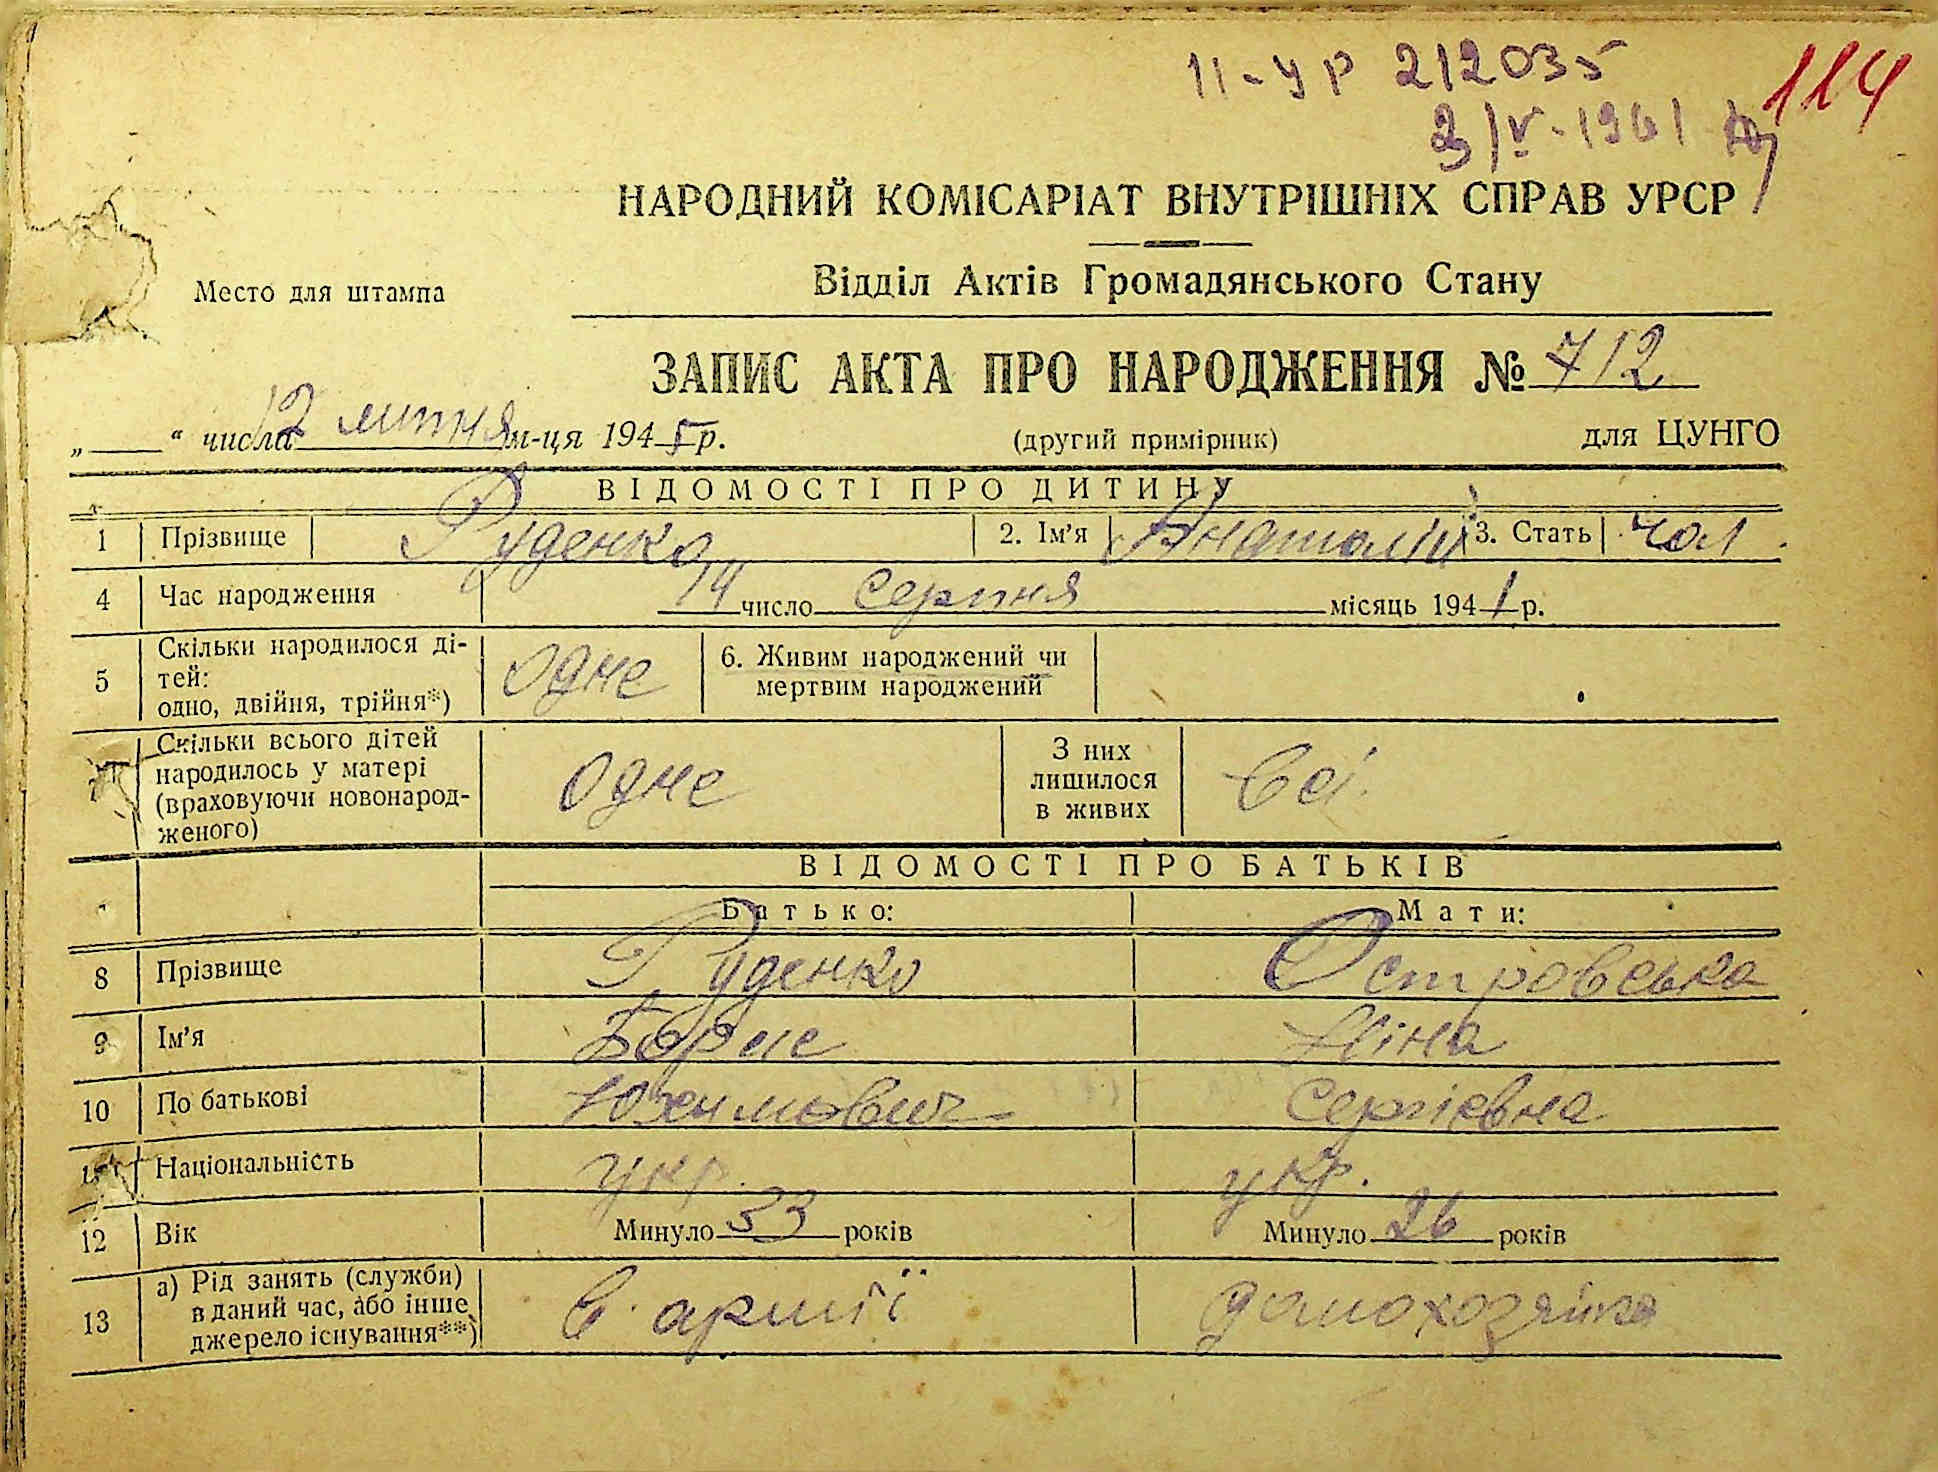 11-УР 212035
114
3/V-1961
НАРОДНИЙ КОМІСАРІАТ ВНУТРІШНІХ СПРАВ УРСР
Место для штампа
Відділ Актів Громадянського Стану
ЗАПИС АКТА ПРО НАРОДЖЕННЯ № 712
„ “ числа 12 липня м-ця 1945 р. (другий примірник) для ЦУНГО
ВІДОМОСТІ ПРО ДИТИНУ
1 Прізвище Руденко 2. Ім'я Анатолій 3. Стать чол.
4 Час народження 14 число серпня місяць 1941 р.
5 Скільки народилося ді-
тей:
одно, двійня, трійня*) одне 6. Живим народжений чи
мертвим народжений
7 Скільки всього дітей
народилось у матері
(враховуючи новонарод-
женого) одне З них
лишилося
в живих Всі.
ВІДОМОСТІ ПРО БАТЬКІВ
Батько: Мати:
8 Прізвище Руденко Островська
9 Ім'я Борис Ніна
10 По батькові Юхимович Сергієвна
11 Національність укр. укр.
12 Вік Минуло 33 років Минуло 26 років
13 а) Рід занять (служби)
в даний час, або інше
джерело існування**) В армії домохозяйка